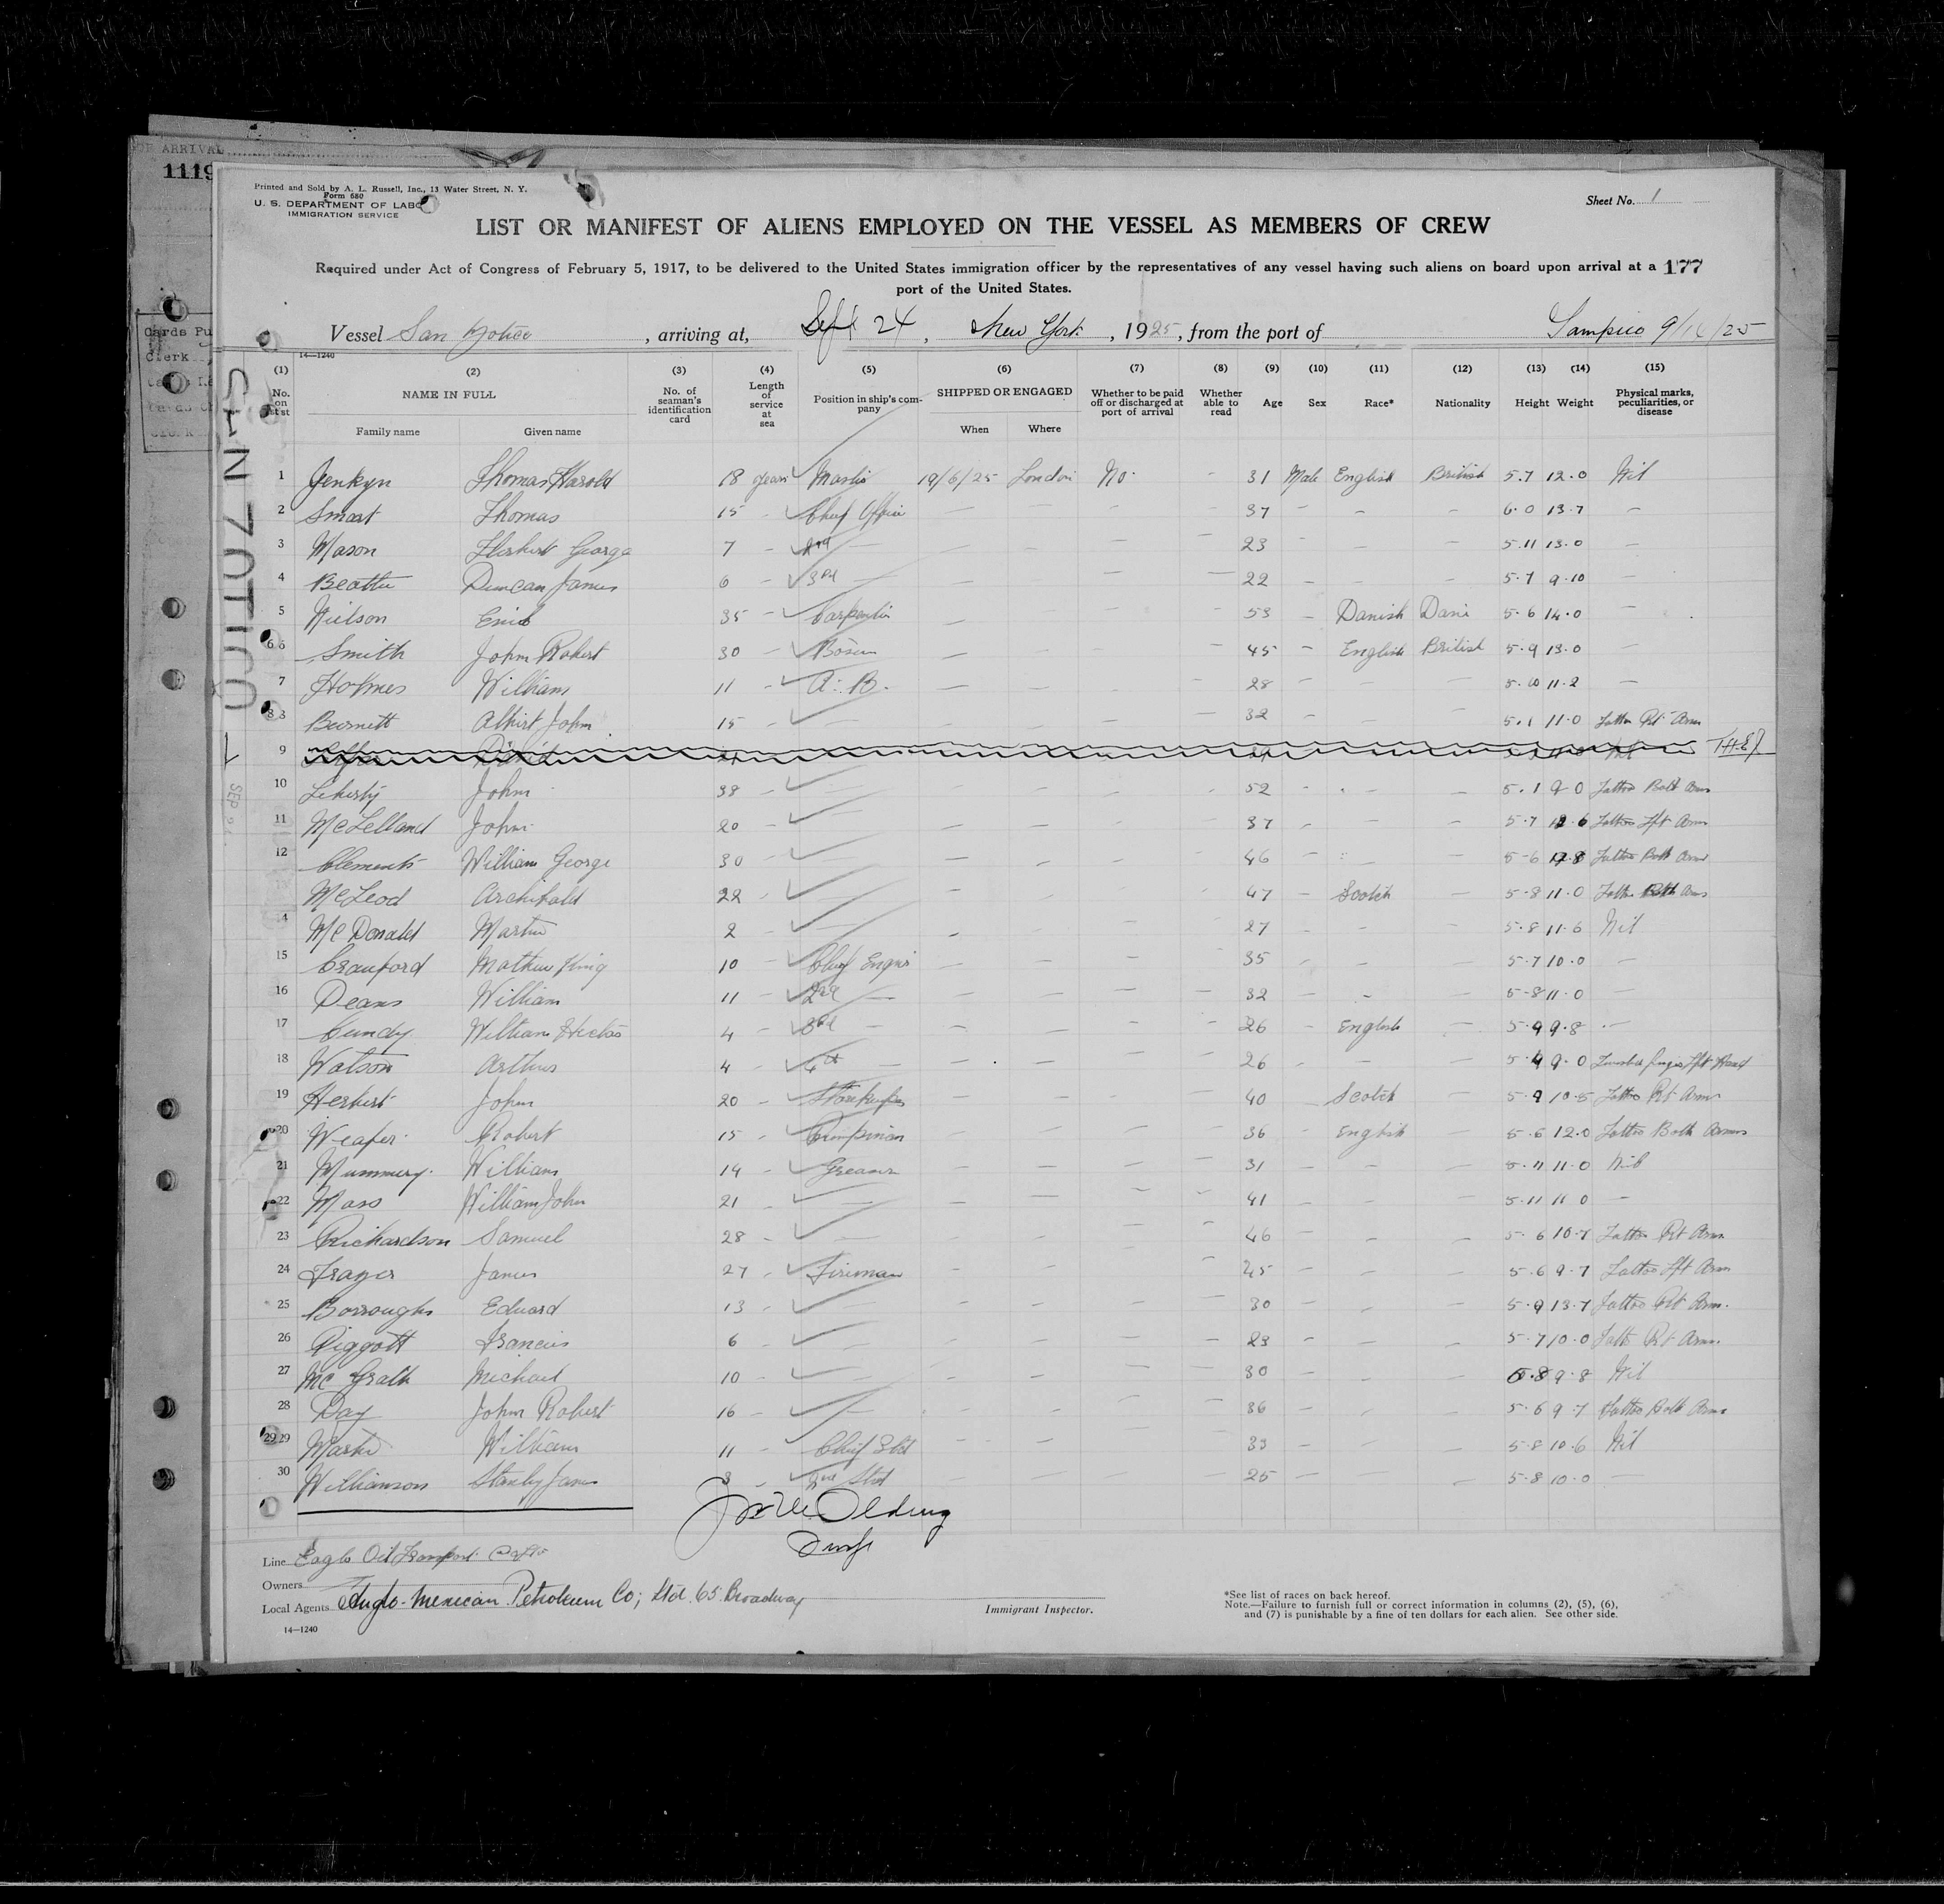 OF ARRIVAL
1119
Cards Pu
Clerk
Printed and Sold by A. L. Russell, Inc., 13 Water Street, N. Y.
Form 680
U. S. DEPARTMENT OF LABO
IMMIGRATION SERVICE
Sheet No. 1
LIST OR MANIFEST OF ALIENS EMPLOYED ON THE VESSEL AS MEMBERS OF CREW
Required under Act of Congress of February 5, 1917, to be delivered to the United States immigration officer by the representatives of any vessel having such aliens on board upon arrival at a 177
port of the United States.
Vessel San , arriving at, Sept 24, New York, 1925, from the port of Tampico 9/16/25
14—1240
(1) (2) (3) (4) (5) (6) (7) (8) (9) (10) (11) (12) (13) (14) (15)
No. on list NAME IN FULL Family name Given name No. of seaman's identification card Length of service at sea Position in ship's company SHIPPED OR ENGAGED When Where Whether to be paid off or discharged at port of arrival Whether able to read Age Sex Race* Nationality Height Weight Physical marks, peculiarities, or disease
1 Jenkyn Thomas Harold 18 years Master 19/6/25 London No. - 31 Male English British 5.7 12.0 Nil
2 Smart Thomas 15 - Chief Officer — — — — 37 - - - 6.0 13.7 —
3 Mason Herbert George 7 - 2nd — — — — — 23 - — — 5.11 13.0 —
4 Beattie Duncan James 6 - 3rd — — — — — 22 — — — 5.7 9.10 —
5 Nielson 35 - Carpenter — — — — 53 - Danish Dane 5.6 14.0 —
6 Smith John Robert 30 - Bosun — — — - 45 - English British 5.9 13.0 —
7 Holmes William 11 - A. B. — — — - 28 - — — 11.2 —
8 Burnett Albert John 15 - — — — — — 32 - — — 5.1 11.0 Tattoo Rt Arm
9
10 John 38 - — — — — - 52 - - — 5.1 9 0 Tattoo Both Arms
11 McLelland John 20 - — — — — — 37 - — — 5.7 12.6 Tattoo Lft Arm
12 Clements William George 30 - — — — — - 46 - — — 5-6 Tattoo Both Arms
McLeod Archibald 22 - — — — — - 47 - Scotch — 5-8 11.0 Tattoo Both Arms
14 McDonald Martin 2 - — — — — — 27 - - — 5.8 11.6 Nil
15 Crawford Mathew King 10 - Chief Engnr — — — — 35 - — — 5.7 10.0 —
16 Deans William 11 - 2nd — — — — — 32 - — — 5-8 11.0 —
17 Cundy William Hector 4 - 3rd — — — — — 26 - English — 5.9 9.8 —
18 Watson Arthur 4 - 4th — — — — — 26 - — — 5.4 9.0 Hand
19 Herbert John 20 - Storekeeper — — — — 40 - Scotch — 5.9 10.5 Tattoo Rt Arm
20 Robert 15 - Pumpman — — — — 36 - English — 5.6 12.0 Tattoo Both Arms
21 Mummery. William 14 - Greaser — — — — 31 - — — 5.11 11.0 Nil
22 William John 21 - — — — — — 41 - — — 5.11 11 0 —
23 Richardson Samuel 28 - — — — — - 46 - — — 5.6 10.7 Tattoo Rt Arm
24 James 27 - Fireman — — — — 45 - — — 5.6 9.7 Tattoo Lft Arm
25 Borroughs Edward 13 - — — — — — 30 - — — 5.9 13.7 Tattoo Rt Arm.
26 Piggott Francis 6 - — — — — — 23 - — — 5.7 10.0 Tatto Rt Arm.
27 Mc Grath Michael 10 - — — — — — 30 - — — 5.8 9.8 Nil
28 Day John Robert 16 - — — — — — 36 - — — 5.6 9.7 Tattoo Both Arms
29 William 11 - Chief Std — — — — 33 - — — 5.8 10.6 Nil
30 Williamson Stanley James 3 - 2nd Std — — — — 25 - — — 5.8 10.0 —
Line Eagle Oil Transport
Owners
Local Agents Anglo-Mexican Petroleum Co; Ltd. 65 Broadway
Immigrant Inspector.
14—1240
*See list of races on back hereof.
Note.—Failure to furnish full or correct information in columns (2), (5), (6),
and (7) is punishable by a fine of ten dollars for each alien. See other side.